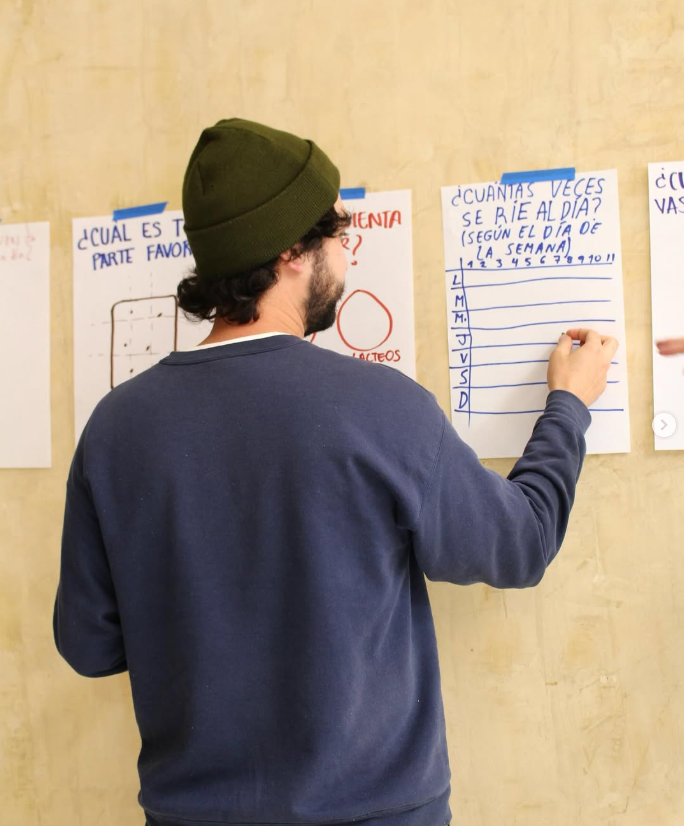 ¿CUAL ES T
PARTE FAVOR
IENTA
?
LÁCTEOS
¿CUANTAS VECES
SE RÍE AL DÍA?
(SEGÚN EL DÍA DE
LA SEMANA)
1 2 3 4 5 6 7 8 9 10 11
L
M
M
J
V
S
D
¿CU
VAS